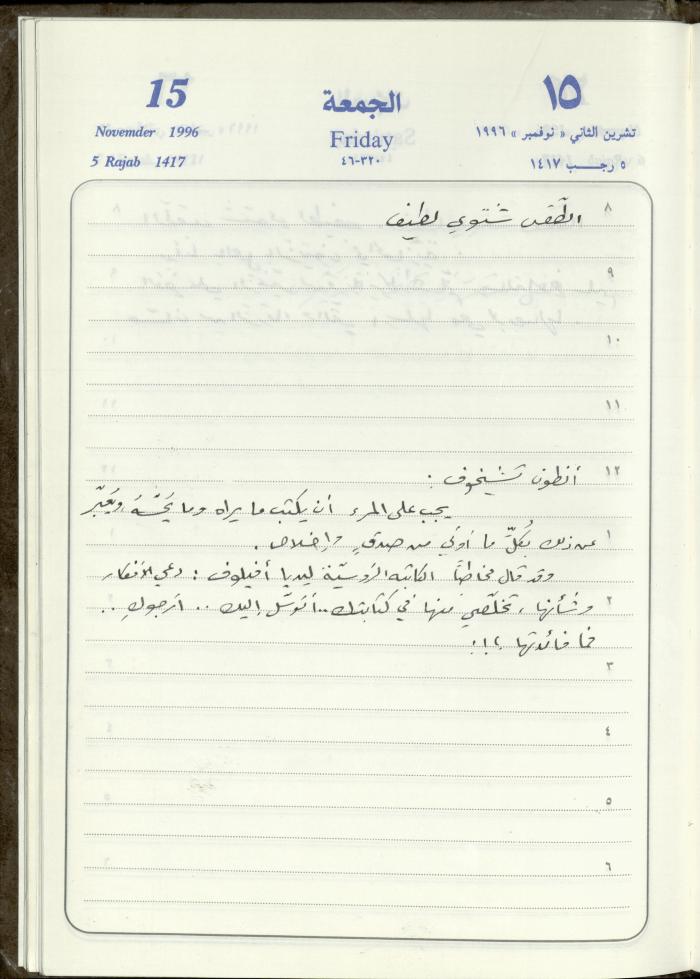 15
الجمعة
١٥
Novemder 1996
Friday
تشرين الثاني « نوفمبر » ١٩٩٦
5 Rajab 1417
٤٦-٣٢٠
٥ رجب ١٤١٧
٨ الطّقس شتوي لطيف
٩
١٠
١١
١٢ أنطون تشيخوف :
يجب على المرء أن يكتب ما يراه وما يَحُسّهُ ويُعبّر
١ عن ذلك بكلّ ما أوتي من صدقٍ وإخلاص .
وقد قال مخاطباً الكاتبه الروسيّة ليديا أفيلوف : دعي الأفكار
٢ وشأنها ، تخلّصي منها في كتابتك .. أتوسّل إليك .. أرجوكِ ..
فما فائدتها ؟!!
٣
٤
٥
٦